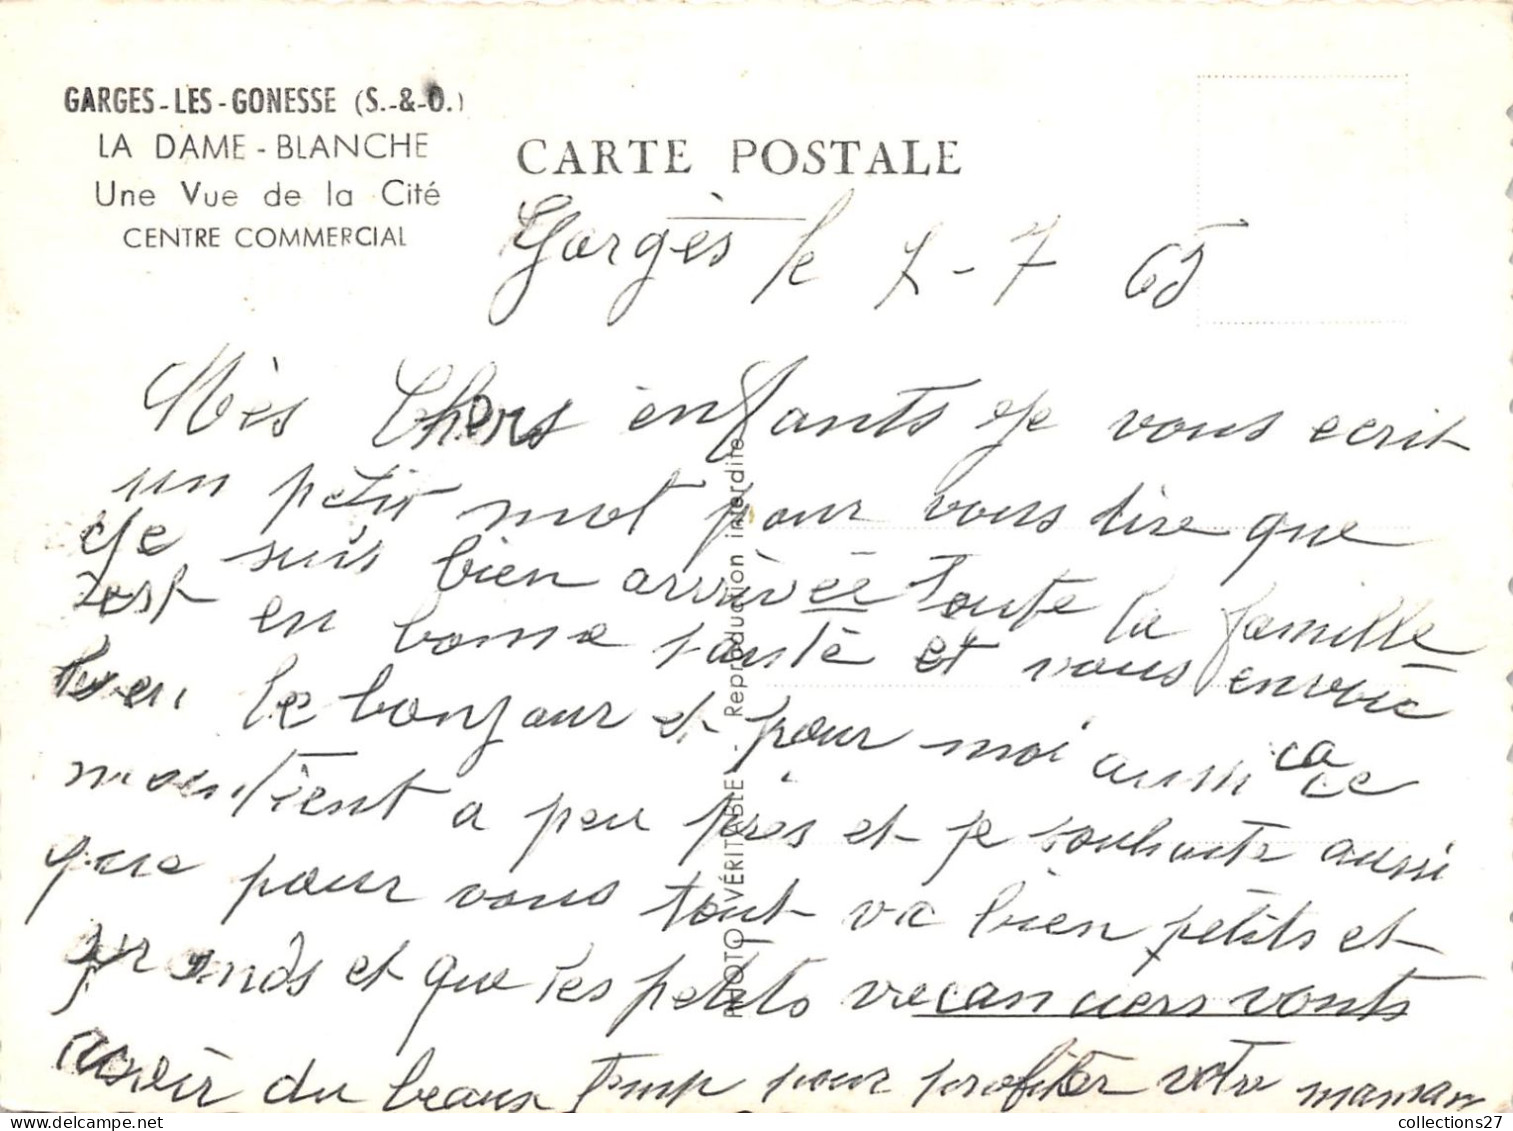 GARGES-LES-GONESSE (S.-&-O.)
LA DAME-BLANCHE
Une Vue de la Cité
CENTRE COMMERCIAL
CARTE POSTALE
Gargès le 7-7 65
Mès Chers enfants Je vous ecrit
un petit mot pour vous dire que
Je suis bien arrivée Toute la famille
est en bonne santé et vous envoie
bien le bonjour et pour moi aussi ca ce
mentient a peu près et je souhaite aussi
que pour vous tout va bien petits et
grands et que les petits vacanciers vonts
avoir du beaux temp pour profiter votre maman
PHOTO VÉRITABLE - Reproduction interdite
collections27